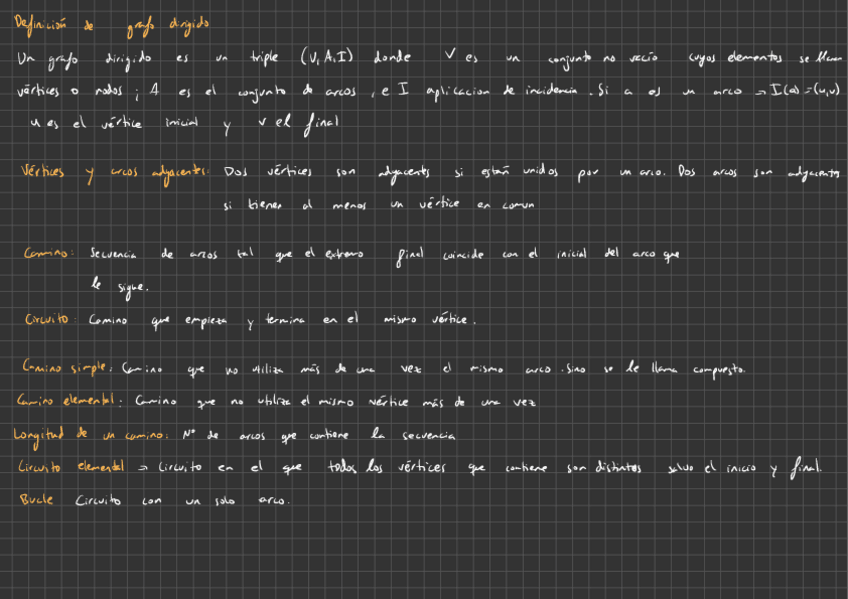 Definición de grafo dirigido
Un grafo dirigido es un triple (V,A,I) donde V es un conjunto no vacío cuyos elementos se llaman
vértices o nodos; A es el conjunto de arcos, e I aplicacion de incidencia. Si a es un arco ⇒ I(a)=(u,v)
u es el vértice inicial y v el final
Vértices y arcos adyacentes: Dos vértices son adyacents si están unidos por un arco. Dos arcos son adyacents
si tienen al menos un vértice en comun
Camino: Secuencia de arcos tal que el extremo final coincide con el inicial del arco que
le sigue.
Circuito: Camino que empieza y termina en el mismo vértice.
Camino simple: Camino que no utiliza más de una vez el mismo arco. Sino se le llama compuesto.
Camino elemental: Camino que no utiliza el mismo vértice más de una vez
Longitud de un camino: Nº de arcos que contiene la secuencia
Circuito elemental ⇒ Circuito en el que todos los vértices que contiene son distintos salvo el inicio y final.
Bucle Circuito con un solo arco.